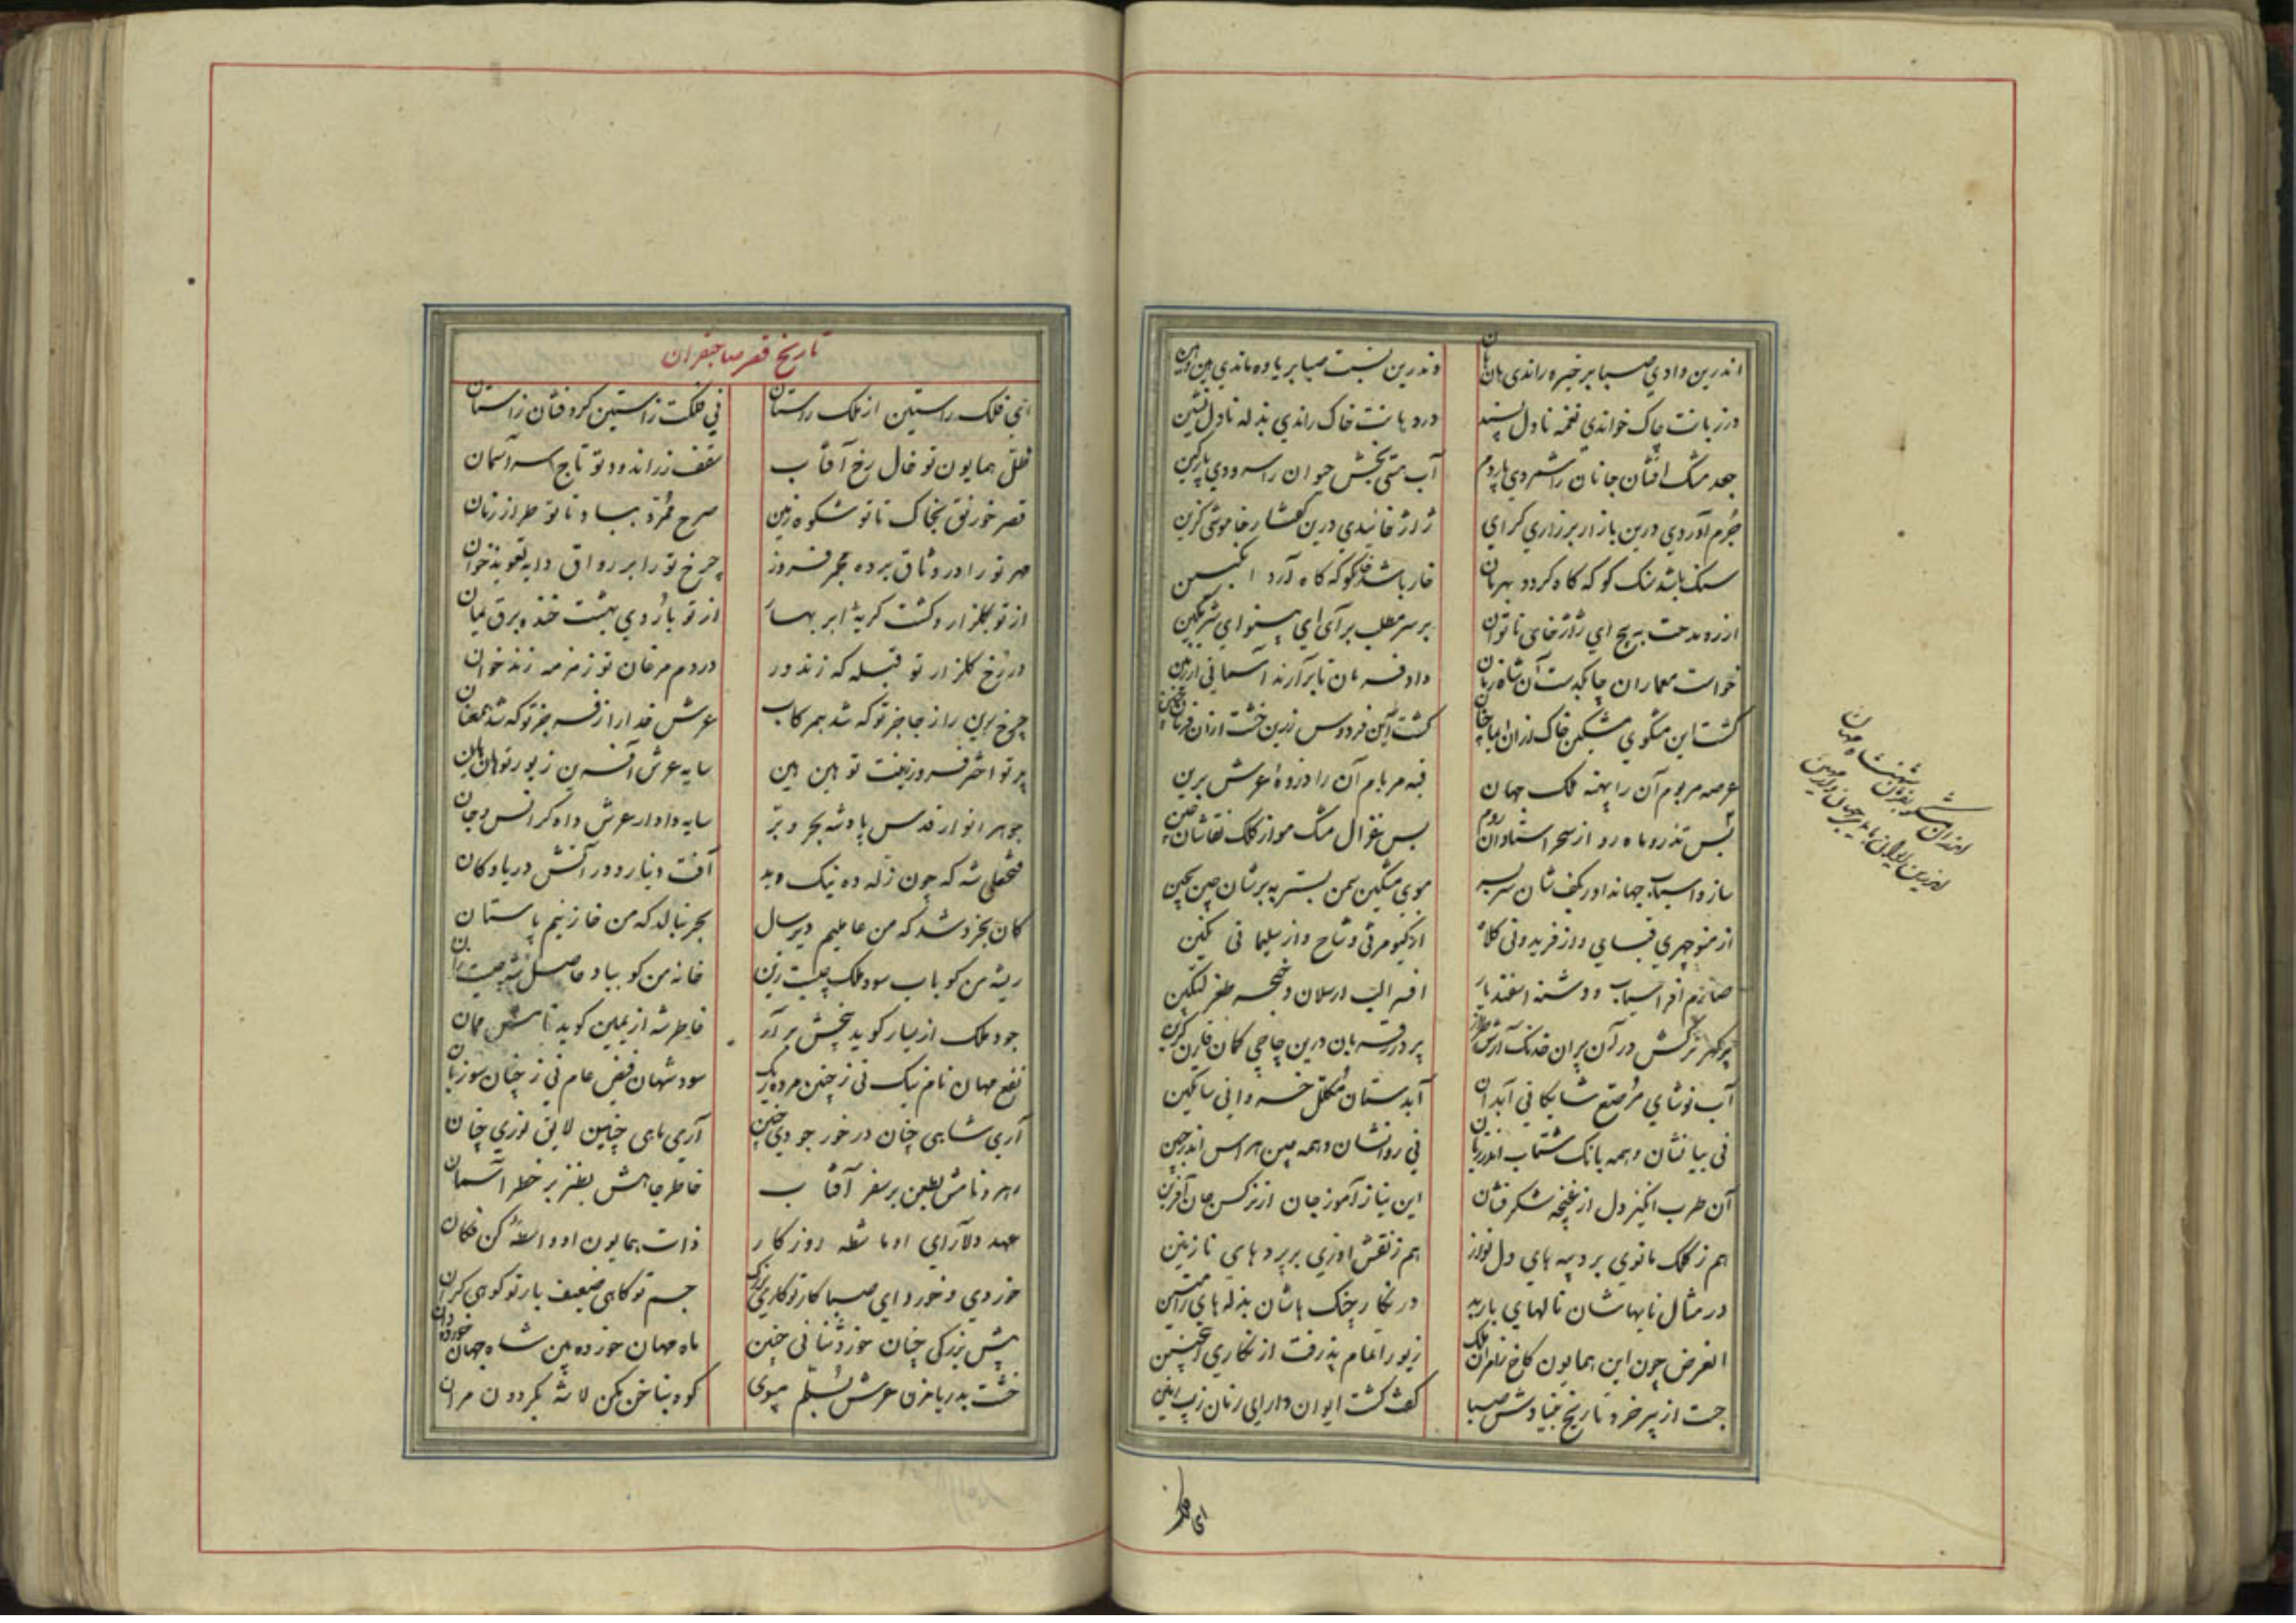 اندرین وادی صبا بر خیره راندی هان هان
وندرین نسبت صبا بر یاوه ماندی هین و هین
در زبانت چاک خواندی نغمه نادل پسند
در دهانت خاک راندی بذله نادل نشین
جعد مشک افشان جانان را شمردی پاردم
آب هستی بخش حیوان را سرودی پارگین
جرم آوردی درین بازار بر زاری گرای
ژاژ خائیدی درین گفتار خاموشی گزین
سنگ باشد سنگ کو که کاه گردد بهرمان
خار باشد خار کو که کاه آرد انگبین
از ره مدحت بپیچ ای ژاژخای ناتوان
بر سر مطلب برآی ای بینوای شرمگین
خواست معماران چابکدست آن شاه زمان
داد فرمان تا برآرند آسمانی از زمین
گشت این مشکوی مشکین خاک از آن
گشت آیین فردوس زرین خشت از آن فرمان
عرصه مر بوم آن را پهنه ملک جهان
قبه مر بام آن را ذروهٔ عرش برین
بس تذرو ماه رو از سحر استادان روم
بس غزال مشک مو از کلک نقاشان چین
ساز و اسباب جهانداور بکف شان سربسر
موی مشکین سمن بستر به برشان چین بچین
از منوچهری قبای و از فریدونی کلاه
از کیومرثی وشاح و از سلیمانی نگین
صارم افراسیاب و دشنه اسفندیار
افسر الب ارسلان و خنجر طغر لتکین
پر گهر ترکش در آن پران خدنگ آرش
پر درر قربان درین چاچی کمان قارن
آب نوشای مرصع شایگانی آبدان
آبدستان مکلل خسروانی ساتکین
نی بیانشان و همه بانگ شتاب اندر زبان
نی روانشان و همه چین هراس اندر جبین
آن طرب انگیز دل از غنچه شکر فشان
این نیاز آموز جان از نرگس جان آفرین
هم ز کلک مانوی بر دیبه های دل نواز
هم ز نقش اوزی بر پردهای نازنین
در مثال نایهاشان نالهای باربد
در نگار چنگ هاشان بذله های رامتین
الغرض چون این همایون کاخ
زیور اتمام پذرفت از نگاری اینچنین
جست از پیر خرد تاریخ بنیادش صبا
گفت گشت ایوان دارای زمان زیب زمین
ای فلک
تاریخ قصر صاحبقران
ای فلک راستین از ملک راستان
نی فلکت زاستین گرد فشان زاستان
ظل همایون تو خال رخ آفتاب
سقف زر اندود تو تاج سر آسمان
قصر خورنق بخاک تا تو شکوه زمین
صرح ممرد بباد تا تو طراز زمان
مهر تو را در وثاق برده مجمر فروز
چرخ تو را بر رواق دایه تعویذ خوان
از تو بگلزار و کشت گریهٔ ابر بهار
از تو باردی بهشت خنده برق یمان
در رخ گلزار تو قبله که زند ور
در دم مرغان تو زمزمه زند خوان
چرخ برین را ز جا جز تو که شد همرکاب
عرش خدا را ز فر جز تو که شد همعنان
پرتو اختر فروز زینت تو هین هین
سایه عرش آفرین زیور تو هان هان
جوهر انوار قدس پادشه بحر و بر
سایه دادار عرش دادگر انس و جان
فتحعلی شه که چون ژاله ده نیک و بد
آفت دینار و در آتش دریا و کان
کان بخروشد که من عاملیم دیر سال
بحر بنالد که من خازنیم باستان
ریشه من کو بآب سود ملک چیست زین
خانه من کو بباد حاصل شه چیست زان
جود ملک از یسار گوید بخشش بر آر
خاطر شه از یمین گوید
نفع مهان نام نیک نی ز چنین مرده ریگ
سود شهان فیض عام نی ز چنان سوزیان
آری شاهی چنان در خور جودی چنین
آری ماهی چنین لایق نوری چنان
چهر دنامش بطعن بر سفر آفتاب
خاطر جاهش بطنز بر خطر آسمان
عهد دلآرای او ماشطه روزگار
ذات همایون او واسطهٔ کن فکان
خوردی و خورد ای صبا کار تو کاری بزرگ
جسم تو کاهی ضعیف بار تو کوهی گران
پیش بزرگی چنان خورد ثنائی چنین
ماه جهان خورده بین شاه جهان خورده دان
خشت بدریا مزن عرش بسلم مپوی
کوه بناخن مکن لاشه بگردون مران